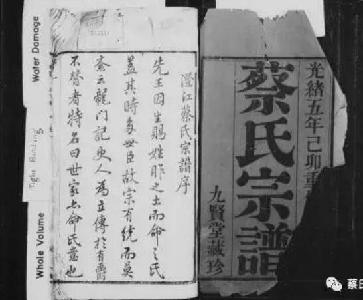 光緒五年己卯重
蔡氏宗譜
九賢堂藏珍
澄江蔡氏宗譜序
先王因生賜姓胙之土而命之氏
蓋其時多世臣故宗有統而莫
紊云龍門記史人為立傳於有爵
不替者特名曰世家出命氏意也
Water Damage
Tight Binding
Whole Volume